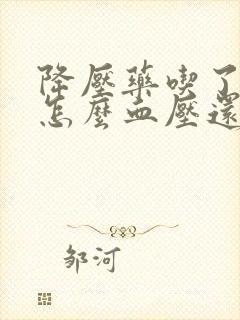 降壓藥喫了
怎麼血壓還
邹河